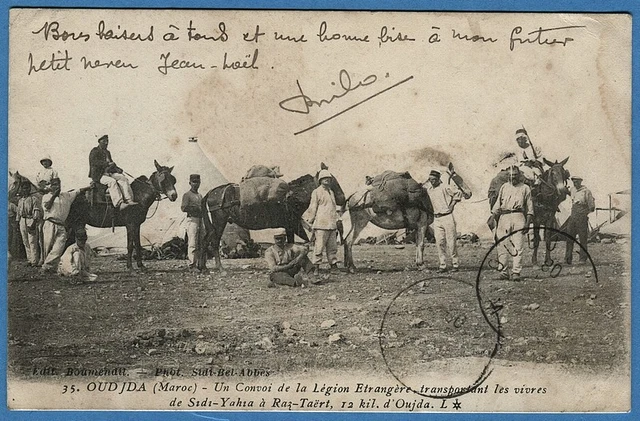 Bons baisers à tous et une bonne bise à mon futur
petit neveu Jean-Noël.
Edit. Boumendil. — Phot. Sidi-Bel-Abbès
35. OUDJDA (Maroc) - Un Convoi de la Légion Etrangère, transportant les vivres
de Sidi-Yahia à Raz-Taërt, 12 kil. d'Oujda. L ✡